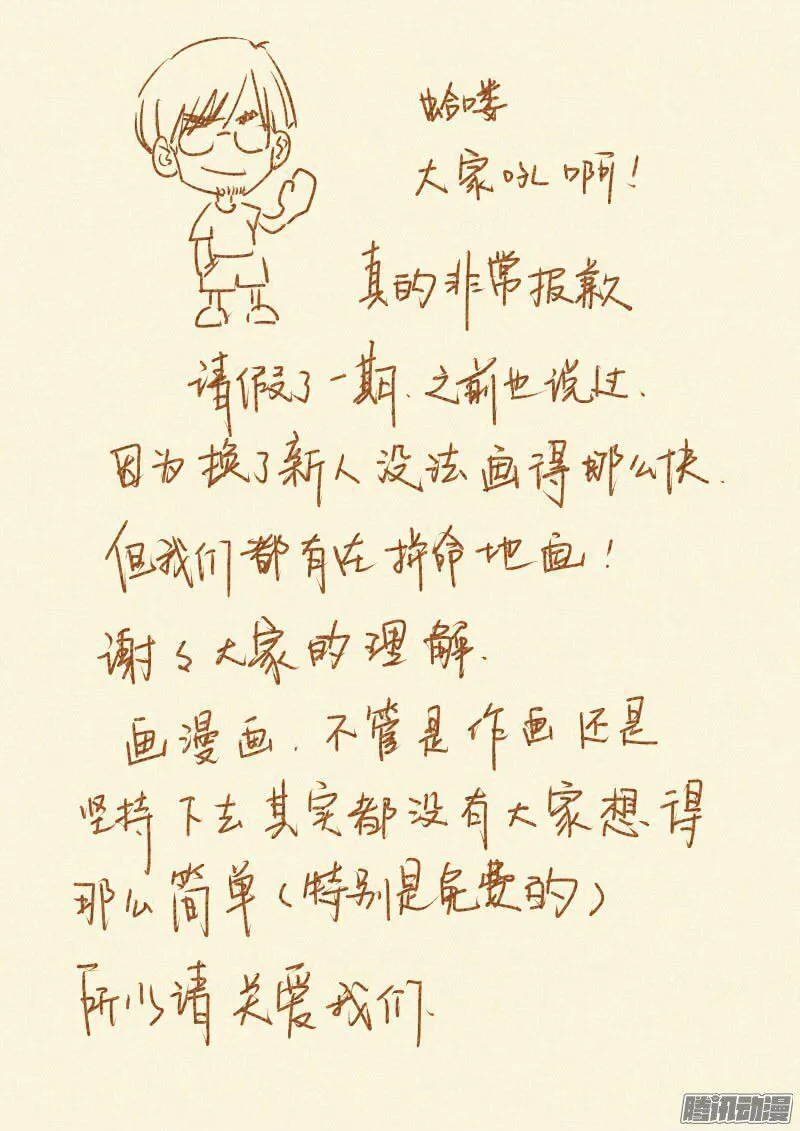 蛤喽
大家吼啊！
真的非常报歉
请假了一期.之前也说过.
因为换了新人没法画得那么快.
但我们都有在拚命地画！
谢々大家的理解.
画漫画.不管是作画还是
坚持下去其实都没有大家想得
那么简单（特别是免费的）
所以请关爱我们.
腾讯动漫